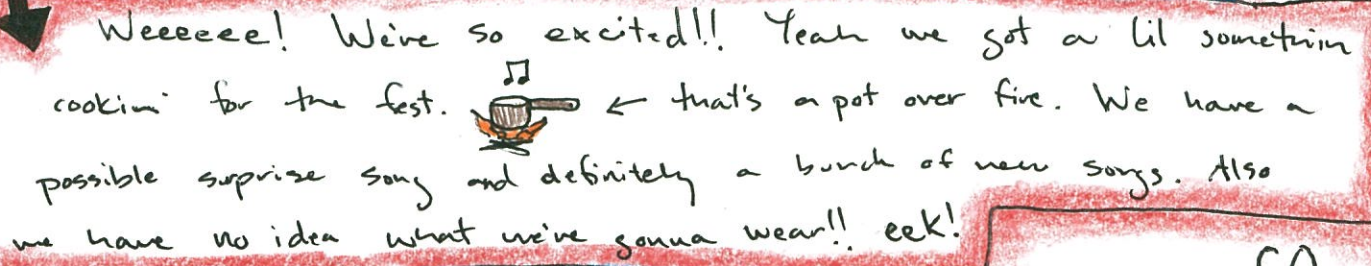 Weeeeee! We're so excited!! Yeah we got a lil somethin
cookin' for the fest. ← that's a pot over fire. We have a
possible surprise song and definitely a bunch of new songs. Also
we have no idea what we're gonna wear!! eek!